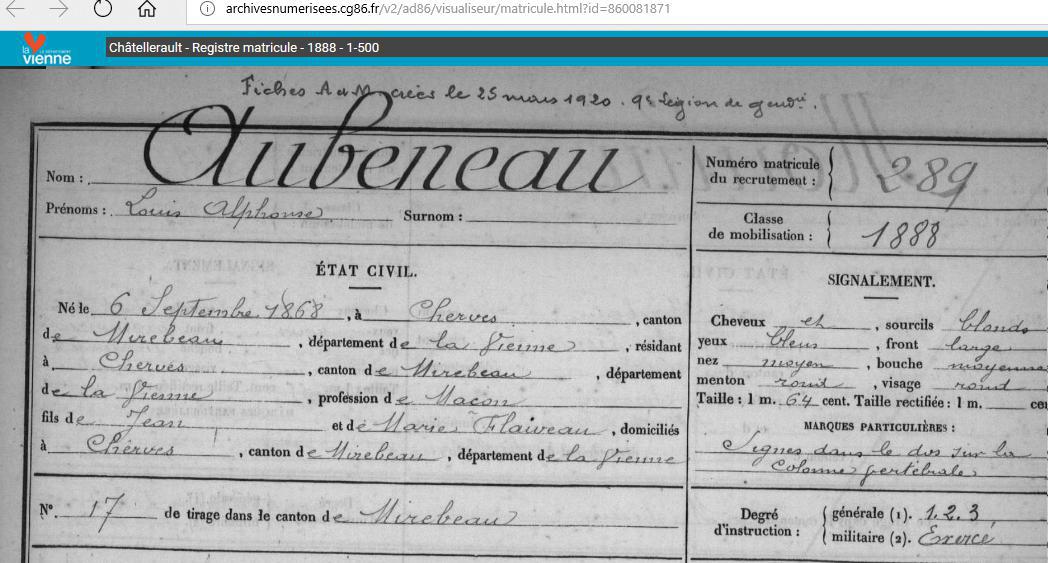 archivesnumerisees.cg86.fr/v2/ad86/visualiseur/matricule.html?id=860081871
la vienne
Châtellerault - Registre matricule - 1888 - 1-500
Fiches A et M créées le 25 mars 1920. 9e Légion de gendrie.
Nom : Aubeneau
Prénoms : Louis Alphonse Surnom :
Numéro matricule du recrutement : 289
Classe de mobilisation : 1888
ÉTAT CIVIL.
Né le 6 Septembre 1868, à Cherves, canton
de Mirebeau, département de la Vienne, résidant
à Cherves, canton de Mirebeau, département
de la Vienne, profession de Maçon
fils de Jean et de Marie Flaiveau, domiciliés
à Cherves, canton de Mirebeau, département de la Vienne
N° 17 de tirage dans le canton de Mirebeau
SIGNALEMENT.
Cheveux et, sourcils blonds
yeux bleus, front large
nez moyen, bouche moyenne
menton rond, visage rond
Taille : 1 m. 64 cent. Taille rectifiée : 1 m. cen
MARQUES PARTICULIÈRES :
Signes dans le dos sur la
Colonne vertébrale
Degré d'instruction : générale (1). 1.2.3
militaire (2). Exercé